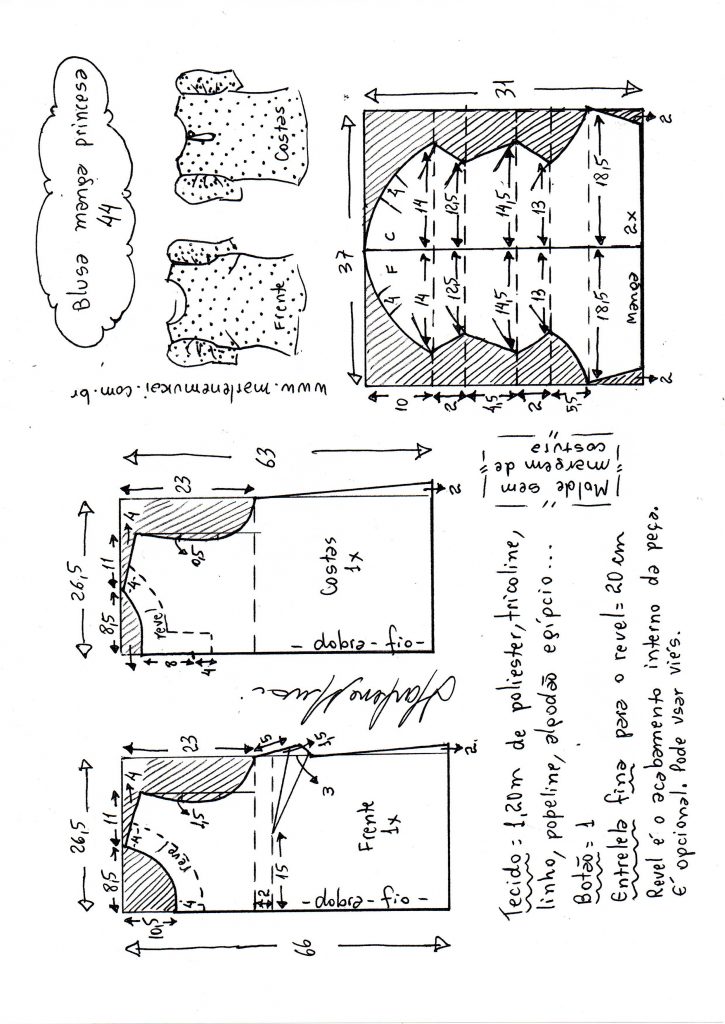 Blusa manga princesa
44
Costas
Frente
www.marlenemukai.com.br
31
37
C
F
4
4
14
12,5
14,5
13
18,5
14
12,5
14,5
13
18,5
Manga
2x
2
2
10
2
4,5
2
5,5
63
23
26,5
8,5
11
4
0,5
4
revel
8
4
Costas
1x
-dobra-fio-
2
Molde sem
margem de
costura
66
23
26,5
8,5
11
4
1,5
4
revel
4
10,5
5
1,5
3
15
2
Frente
1x
-dobra-fio-
2
Tecido = 1,20m de poliester, tricoline,
linho, popeline, algodão egípcio...
Botão = 1
Entretela fina para o revel = 20 cm
Revel é o acabamento interno da peça.
É opcional. Pode usar viés.